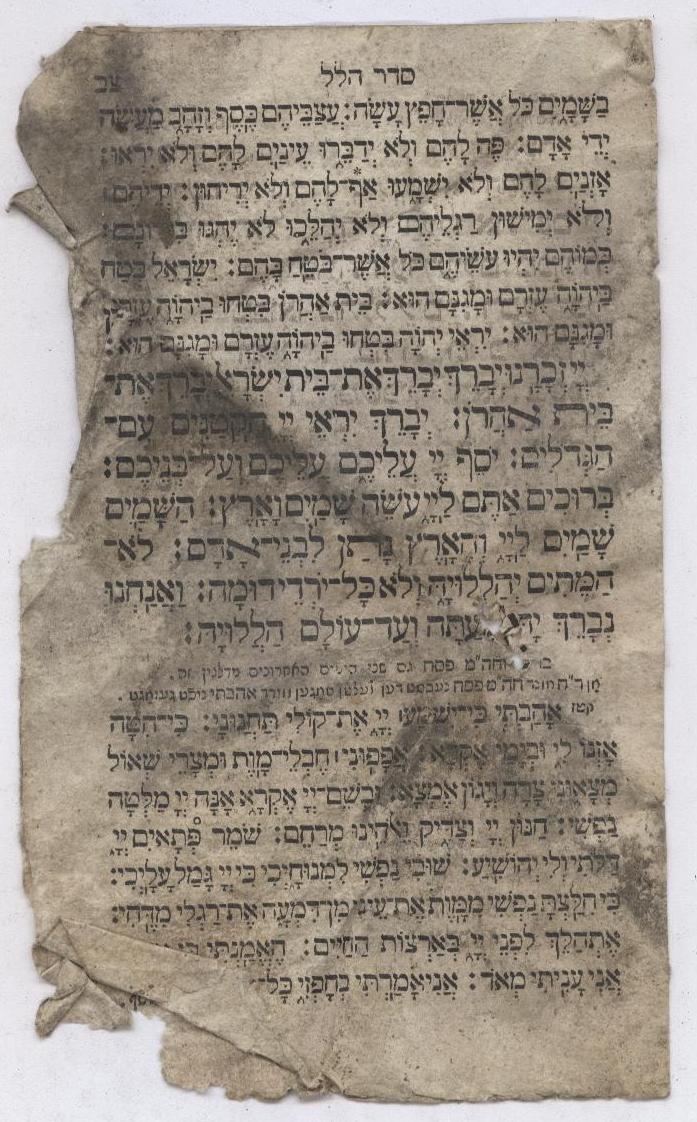 סדר הלל
צב
בַשָּׁמָיִם כֹּל אֲשֶׁר־חָפֵץ עָשָׂה: עֲצַבֵּיהֶם כֶּסֶף וְזָהָב מַעֲשֵׂה
יְדֵי אָדָם: פֶּה לָהֶם וְלֹא יְדַבֵּרוּ עֵינַיִם לָהֶם וְלֹא יִרְאוּ:
אָזְנַיִם לָהֶם וְלֹא יִשְׁמָעוּ אַף־לָהֶם וְלֹא יְרִיחוּן: יְדֵיהֶם
וְלֹא יְמִישׁוּן רַגְלֵיהֶם וְלֹא יְהַלֵּכוּ לֹא יֶהְגּוּ
כְּמוֹהֶם יִהְיוּ עֹשֵׂיהֶם כֹּל אֲשֶׁר־בֹּטֵחַ בָּהֶם: יִשְׂרָאֵל בְּטַח
בַּיהֹוָה עֶזְרָם וּמָגִנָּם הוּא: בֵּית אַהֲרֹן בִּטְחוּ בַיהֹוָה עֶזְרָם
וּמָגִנָּם הוּא: יִרְאֵי יְהֹוָה בִּטְחוּ בַיהֹוָה עֶזְרָם וּמָגִנָּם הוּא:
יְיָ זְכָרָנוּ יְבָרֵךְ יְבָרֵךְ אֶת־בֵּית יִשְׂרָאֵל יְבָרֵךְ אֶת־
בֵּית אַהֲרֹן: יְבָרֵךְ יִרְאֵי יְיָ הַקְּטַנִּים עִם־
הַגְּדֹלִים: יֹסֵף יְיָ עֲלֵיכֶם עֲלֵיכֶם וְעַל־בְּנֵיכֶם:
בְּרוּכִים אַתֶּם לַייָ עֹשֵׂה שָׁמַיִם וָאָרֶץ: הַשָּׁמַיִם
שָׁמַיִם לַייָ וְהָאָרֶץ נָתַן לִבְנֵי־אָדָם: לֹא־
הַמֵּתִים יְהַלְלוּיָהּ וְלֹא כָּל־יֹרְדֵי דוּמָה: וַאֲנַחְנוּ
נְבָרֵךְ יָהּ מֵעַתָּה וְעַד־עוֹלָם הַלְלוּיָהּ:
וחה"מ פסח גם שני הימים האחרונים מדלגין זה.
אן ר"ח אונד חה"מ פסח
קטז אָהַבְתִּי כִּי־יִשְׁמַע יְיָ אֶת־קוֹלִי תַּחֲנוּנָי: כִּי־הִטָּה
אָזְנוֹ לִי וּבְיָמַי אֶקְרָא: אֲפָפוּנִי חֶבְלֵי־מָוֶת וּמְצָרֵי שְׁאוֹל
מְצָאוּנִי צָרָה וְיָגוֹן אֶמְצָא: וּבְשֵׁם־יְיָ אֶקְרָא אָנָּה יְיָ מַלְּטָה
נַפְשִׁי: חַנּוּן יְיָ וְצַדִּיק וֵאלֹהֵינוּ מְרַחֵם: שֹׁמֵר פְּתָאיִם יְיָ
דַּלּוֹתִי וְלִי יְהוֹשִׁיעַ: שׁוּבִי נַפְשִׁי לִמְנוּחָיְכִי כִּי יְיָ גָּמַל עָלָיְכִי:
כִּי חִלַּצְתָּ נַפְשִׁי מִמָּוֶת אֶת־עֵינִי מִן־דִּמְעָה אֶת־רַגְלִי מִדֶּחִי:
אֶתְהַלֵּךְ לִפְנֵי יְיָ בְּאַרְצוֹת הַחַיִּים: הֶאֱמַנְתִּי
אֲנִי עָנִיתִי מְאֹד: אֲנִי אָמַרְתִּי בְחָפְזִי כָּל־